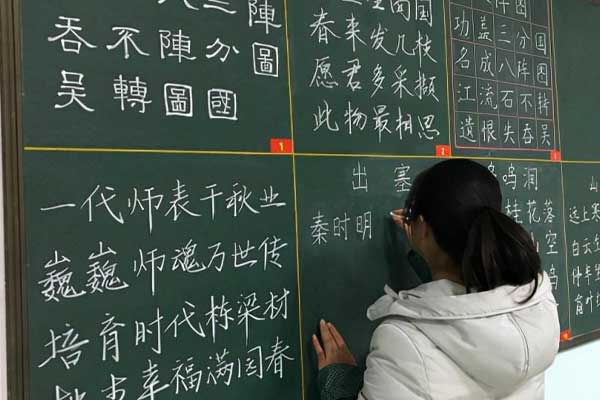 陣圖
三分國
八陣圖
不轉
吞吴
生南国
春来发几枝
愿君多采撷
此物最相思
阵图
功盖三分国
名成八阵图
江流石不转
遗恨失吞吴
1
2
一代师表千秋业
巍巍师魂万世传
培育时代栋梁材
幸福满园春
出塞
秦时明
鸣涧
桂花落
空
山
远上寒
白云生